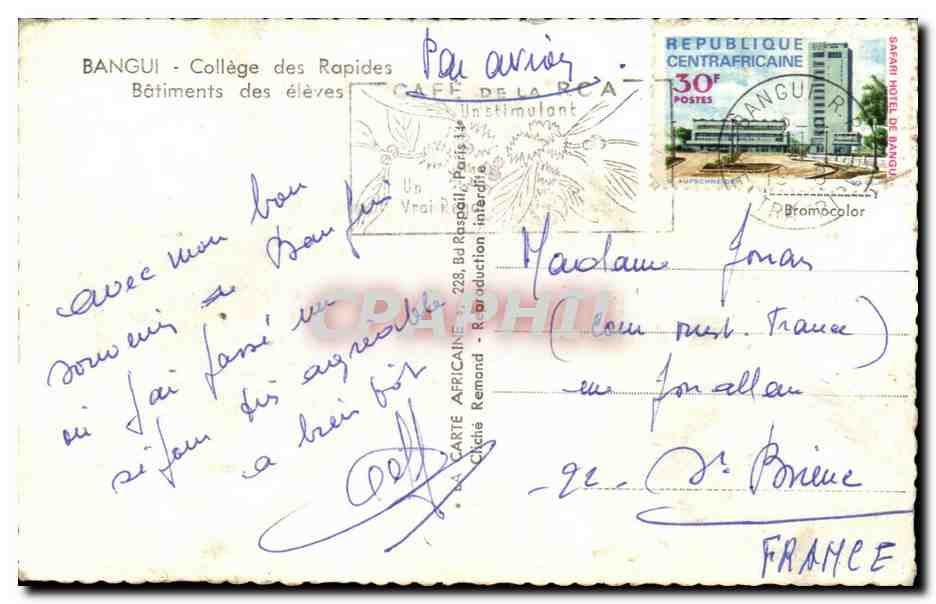 BANGUI - Collège des Rapides
Bâtiments des élèves
Par avion
CAFÉ DE LA RCA
Un stimulant
Un
Vrai
REPUBLIQUE
CENTRAFRICAINE
30F
POSTES
SAFARI HOTEL DE BANGUI
AUFSCHNEIDER
BANGUI R
Bromocolor
avec mon bon
souvenir de Bangui
où j'ai passé un
séjour très agréable
a bientôt
LA CARTE AFRICAINE 228, Bd Raspail, Paris 14e
Cliché Remond - Reproduction interdite
CPAPHIL
Madame
( ouest. France )
rue
-22- St Brieuc
FRANCE